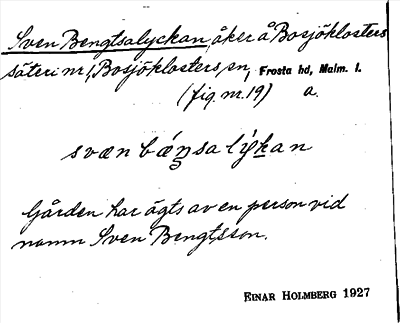 Sven Bengtsalyckan, åker å Bosjöklosters
säteri nr 1, Bosjöklosters sn, Frosta hd, Malm. l.
(fig. nr. 19) a.
svæn bǽŋsa lýkan
Gården har ägts av en person vid
namn Sven Bengtsson.
EINAR HOLMBERG 1927